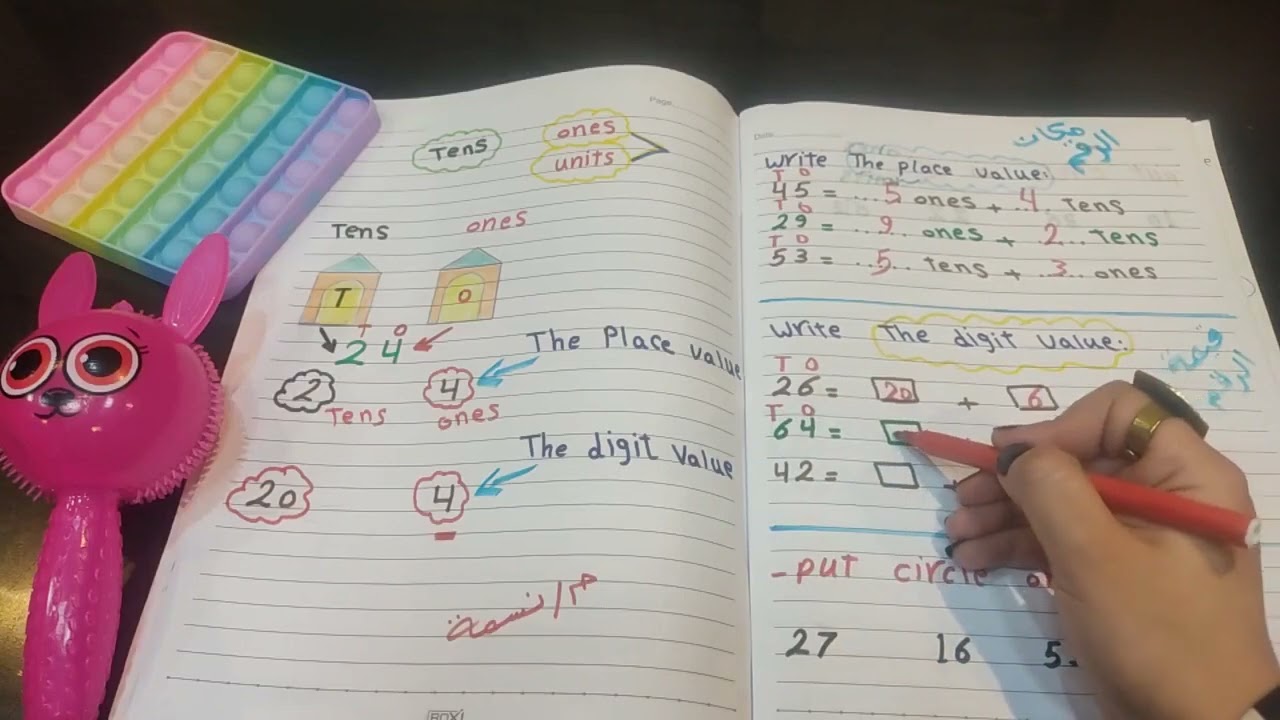 Page
Tens
ones
units
Tens ones
T O
T O
2 4
The Place value
2 4
Tens ones
The digit value
20 4
م/نسمة
ROXI
Date
مكان
الرقم
write The place value:
T O
45 = ...5 ones + .4.. Tens
T O
29 = ..9.. ones + .2... Tens
T O
53 = ..5.. Tens + ..3.. ones
write The digit value:
قيمة
الرقم
T O
26 = 20 + 6
T O
64 =
42 =
- put circle
27 16 5